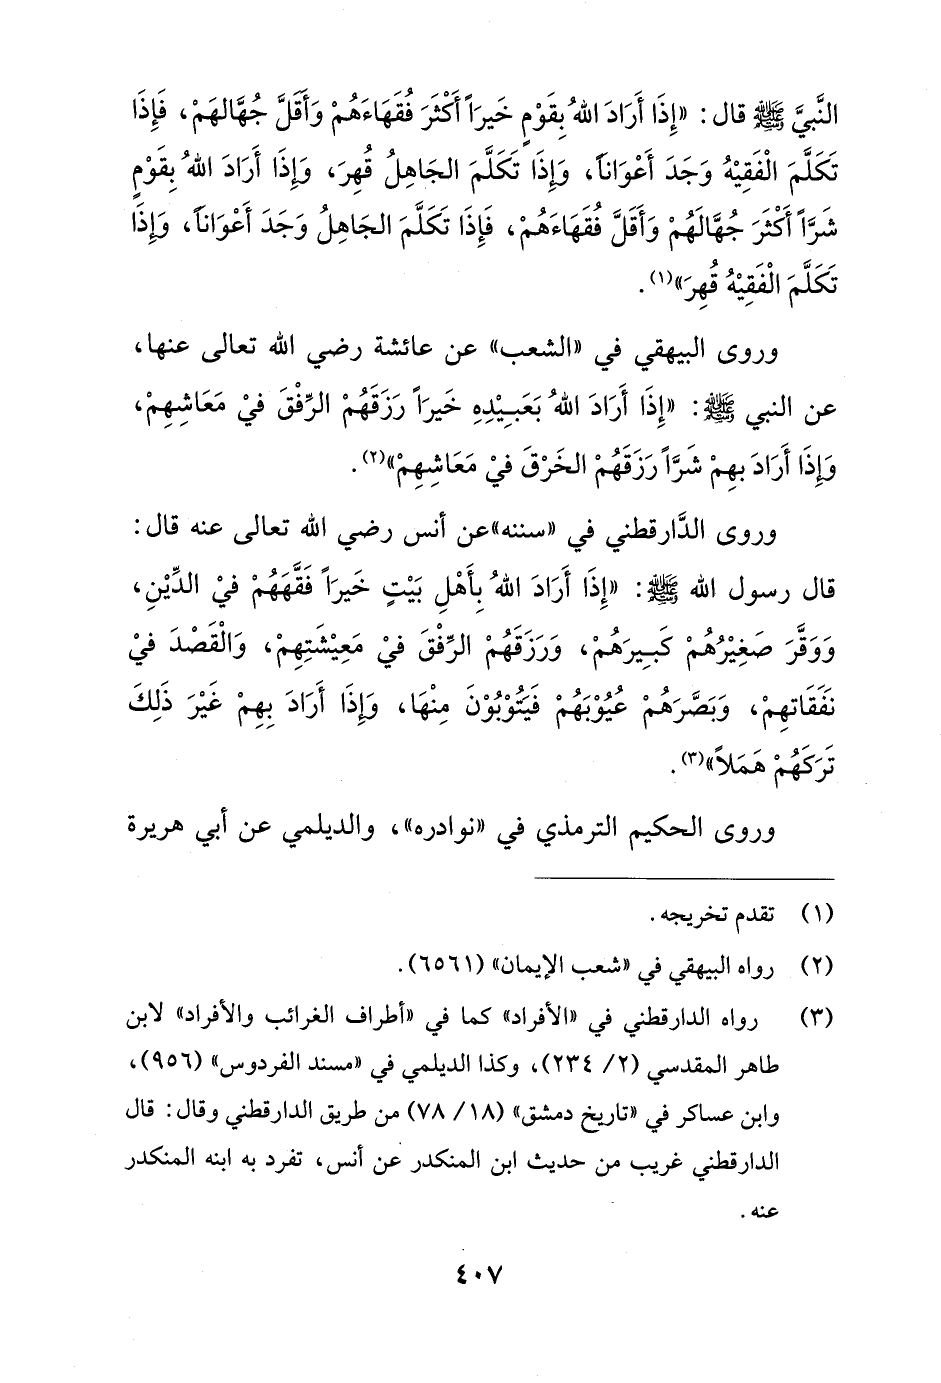 النَّبِيَّ ﷺ قال: «إِذَا أَرَادَ اللهُ بِقَوْمٍ خَيرَاً أَكْثَرَ فُقَهَاءَهُمْ وَأَقَلَّ جُهَّالهَمْ، فَإِذَا
تَكَلَّمَ الْفَقِيْهُ وَجَدَ أَعْوَاناً، وَإِذَا تَكَلَّمَ الجَاهِلُ قُهِرَ، وَإِذَا أَرَادَ اللهُ بِقَوْمٍ
شَرَّاً أَكْثَرَ جُهَّالَهُمْ وَأَقَلَّ فُقَهَاءَهُمْ، فَإِذَا تَكَلَّمَ الجَاهِلُ وَجَدَ أَعْوَاناً، وَإِذَا
تَكَلَّمَ الْفَقِيْهُ قُهِرَ»(١).
وروى البيهقي في «الشعب» عن عائشة رضي الله تعالى عنها،
عن النبي ﷺ: «إِذَا أَرَادَ اللهُ بَعَبِيْدِهِ خَيرَاً رَزَقَهُمْ الرِّفْقَ فيْ مَعَاشِهِمْ،
وَإِذَا أَرَادَ بِهِمْ شَرَّاً رَزَقَهُمْ الخَرْقَ فيْ مَعَاشِهِمْ»(٢).
وروى الدَّارقطني في «سننه»عن أنس رضي الله تعالى عنه قال:
قال رسول الله ﷺ: «إِذَا أَرَادَ اللهُ بِأَهْلِ بَيْتٍ خَيرَاً فَقَّهَهُمْ فيْ الدِّيْنِ،
وَوَقَّرَ صَغِيْرُهُمْ كَبِيرَهُمْ، وَرَزَقَهُمْ الرِّفْقَ فيْ مَعِيْشَتِهِمْ، وَالْقَصْدَ فيْ
نَفَقَاتهِمْ، وَبَصَّرَهُمْ عُيُوْبَهُمْ فَيَتُوْبُوْنَ مِنْهَا، وَإِذَا أَرَادَ بِهِمْ غَيْرَ ذَلِكَ
تَرَكَهُمْ هَمَلاً»(٣).
وروى الحكيم الترمذي في «نوادره»، والديلمي عن أبي هريرة
(١) تقدم تخريجه.
(٢) رواه البيهقي في «شعب الإيمان» (٦٥٦١).
(٣) رواه الدارقطني في «الأفراد» كما في «أطراف الغرائب والأفراد» لابن
طاهر المقدسي (٢/ ٢٣٤)، وكذا الديلمي في «مسند الفردوس» (٩٥٦)،
وابن عساكر في «تاريخ دمشق» (١٨/ ٧٨) من طريق الدارقطني وقال: قال
الدارقطني غريب من حديث ابن المنكدر عن أنس، تفرد به ابنه المنكدر
عنه.
٤٠٧